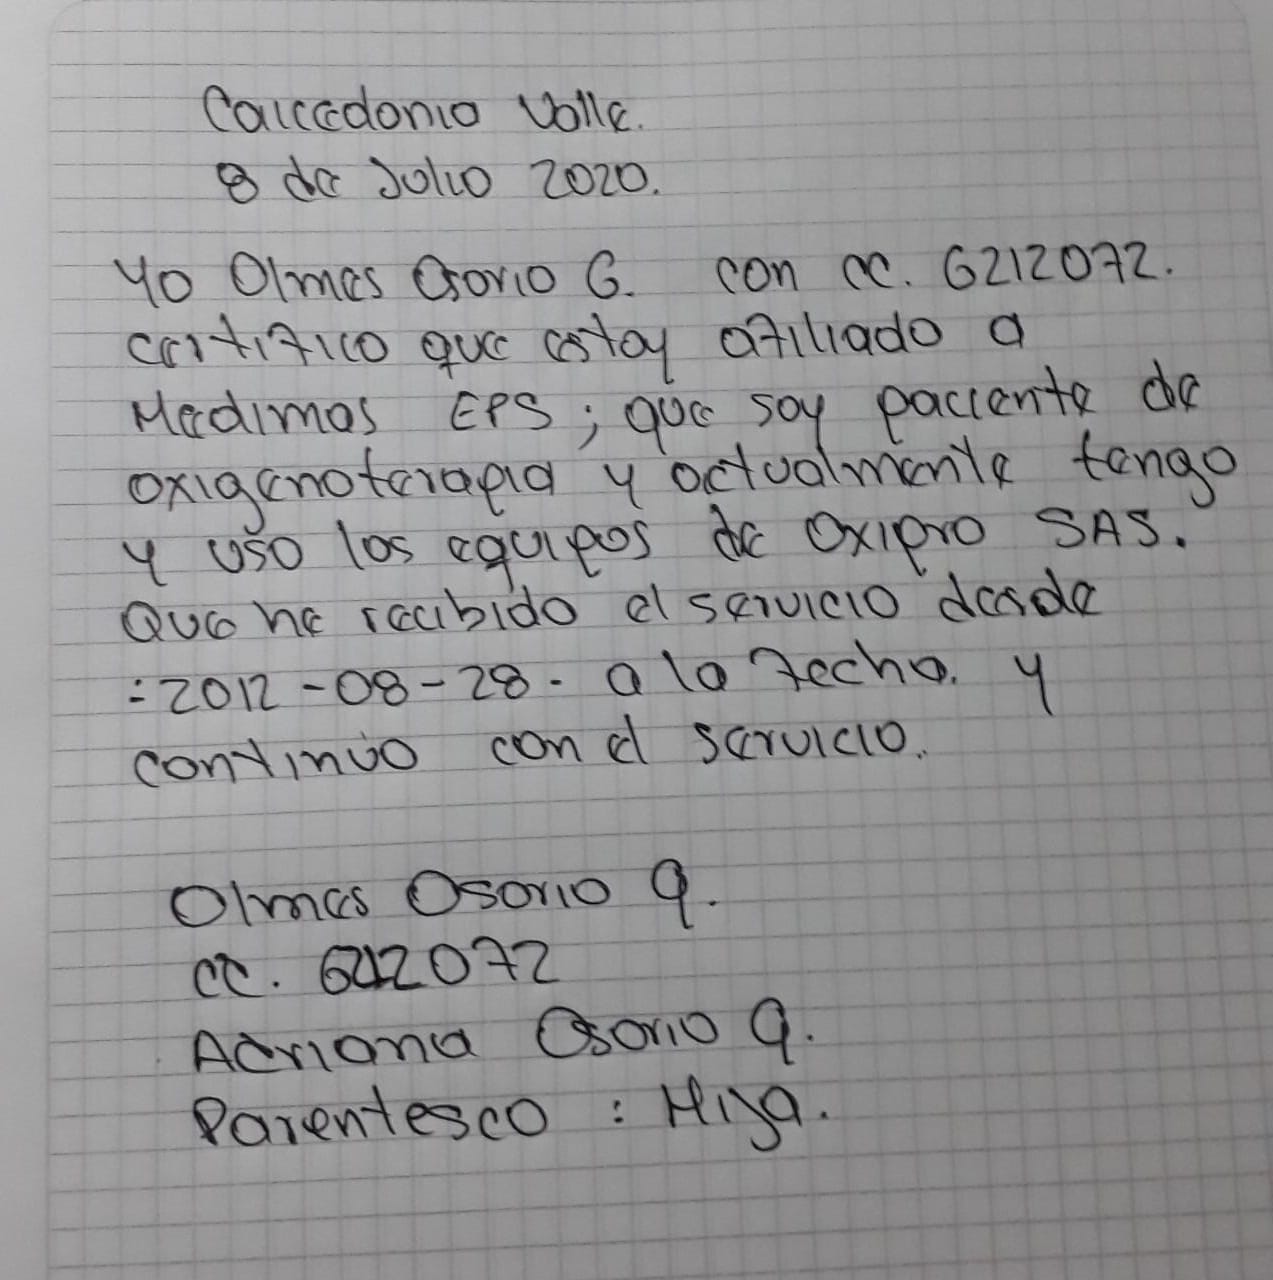 Caicedonia Valle.
8 de Julio 2020.
Yo Olmes Osorio G. con cc. 6212072.
certifico que estoy afiliado a
Medimas EPS; que soy paciente de
oxigenoterapia y actualmente tengo
y uso los equipos de Oxipro SAS.
Que he recibido el servicio desde
:2012-08-28. a la fecha. y
continúo con el servicio.
Olmes Osorio G.
cc. 6212072
Adriana Osorio G.
Parentesco : Hija.